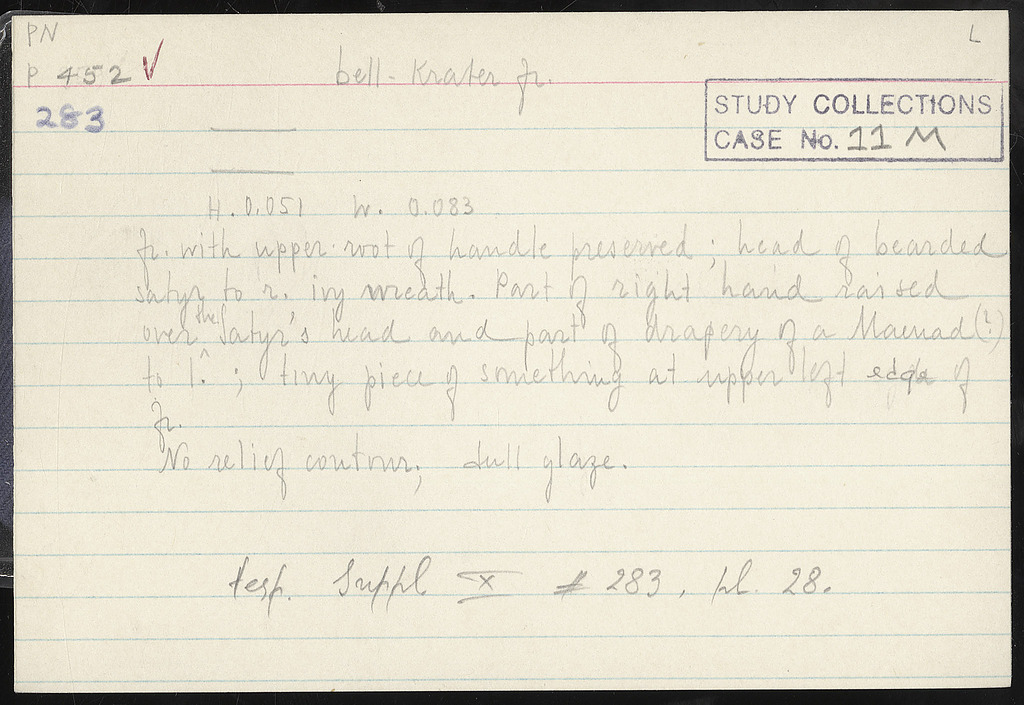 PN
L
P 452 √
bell-Krater fr.
283
STUDY COLLECTIONS
CASE No. 11 M
H. 0.051 W. 0.083
fr. with upper root of handle preserved; head of bearded
satyr to r. ivy wreath. Part of right hand raised
over the Satyr's head and part of drapery of a Maenad (?)
to l.; tiny piece of something at upper left edge of
fr.
No relief contour; dull glaze.
Hesp. Suppl X # 283, pl. 28.